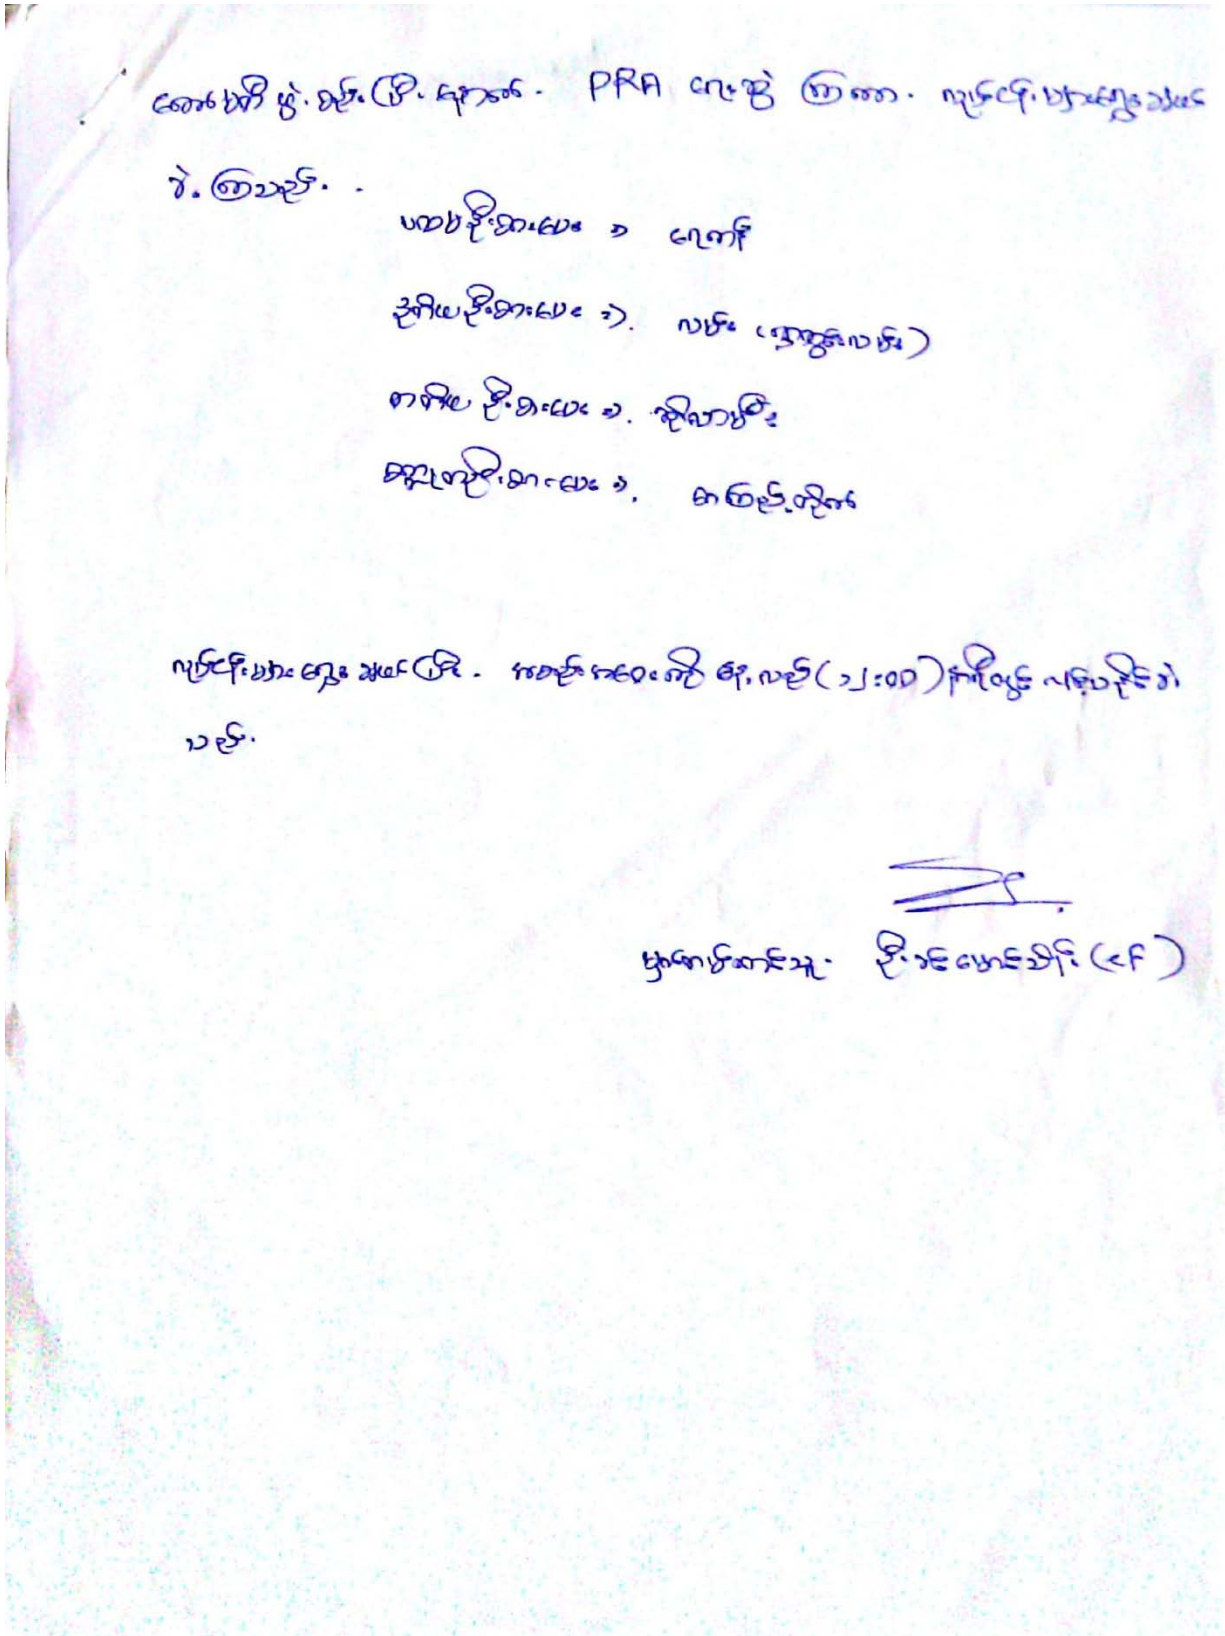 ကော်မတီဖွဲ့စည်းပြီးနောက်. PRA ရေးဆွဲကြကာ. လုပ်ငန်းများရွေးချယ်
ခဲ့ကြသည်.
ပထမဦးစားပေး ၁ ရေကန်
ဒုတိယဦးစားပေး ၁. လမ်း (ရွာတွင်းလမ်း)
တတိယဦးစားပေး ၁. ဆိုလာမီး
စတုတ္ထဦးစားပေး ၁. စာကြည့်တိုက်
လုပ်ငန်းများရွေးချယ်ပြီး. အစည်းအဝေးကို နေ့လည် (၁၂:၀၀) နာရီတွင် လုပ်ပနိုင်ခဲ့
သည်.
မှတ်တမ်းတင်သူ. ဦးခင်မောင်သိန်း (CF)